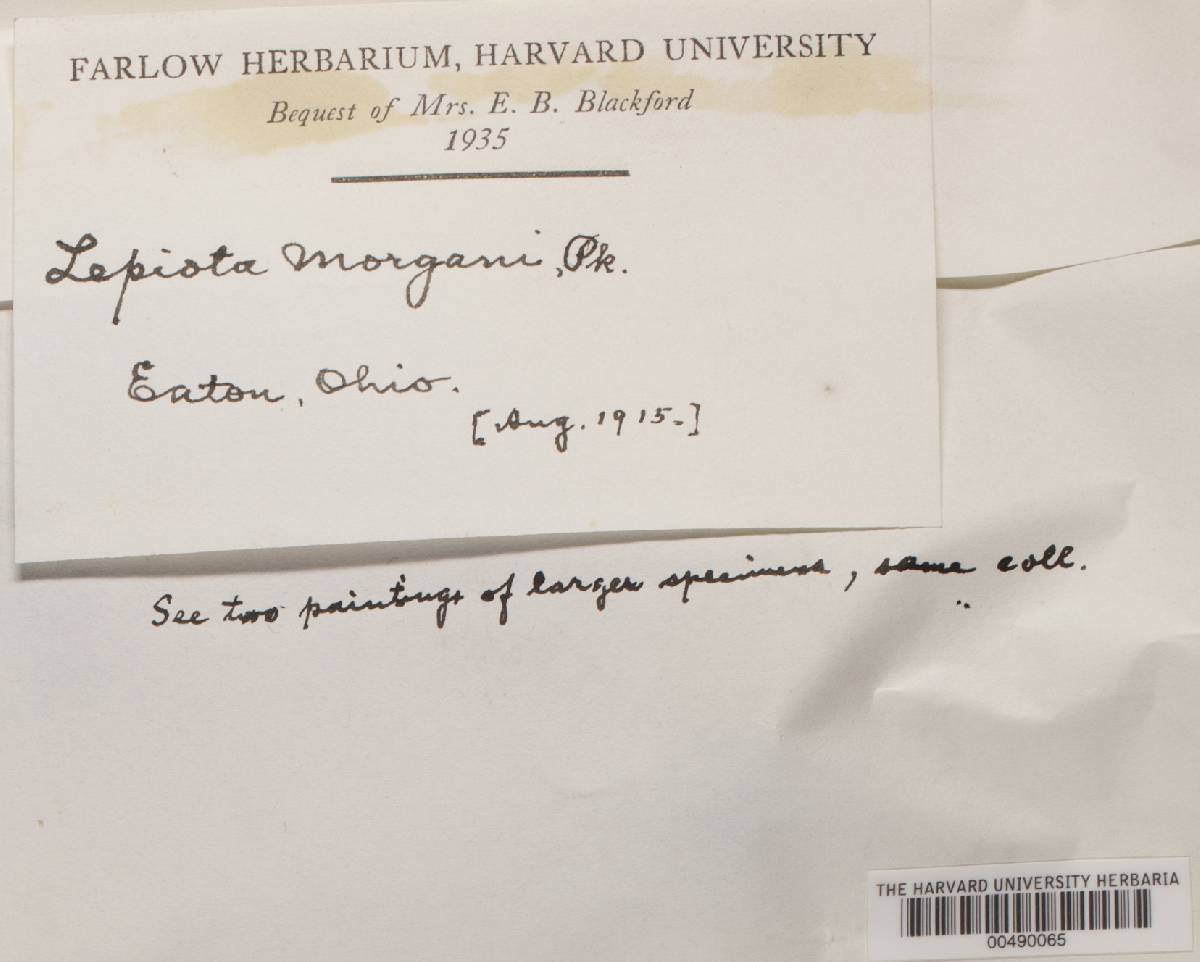 FARLOW HERBARIUM, HARVARD UNIVERSITY
Bequest of Mrs. E. B. Blackford
1935
Lepiota Morgani, Pk.
Eaton, Ohio.
[Aug. 1915-]
See two paintings of larger specimens, same coll.
THE HARVARD UNIVERSITY HERBARIA
00490065